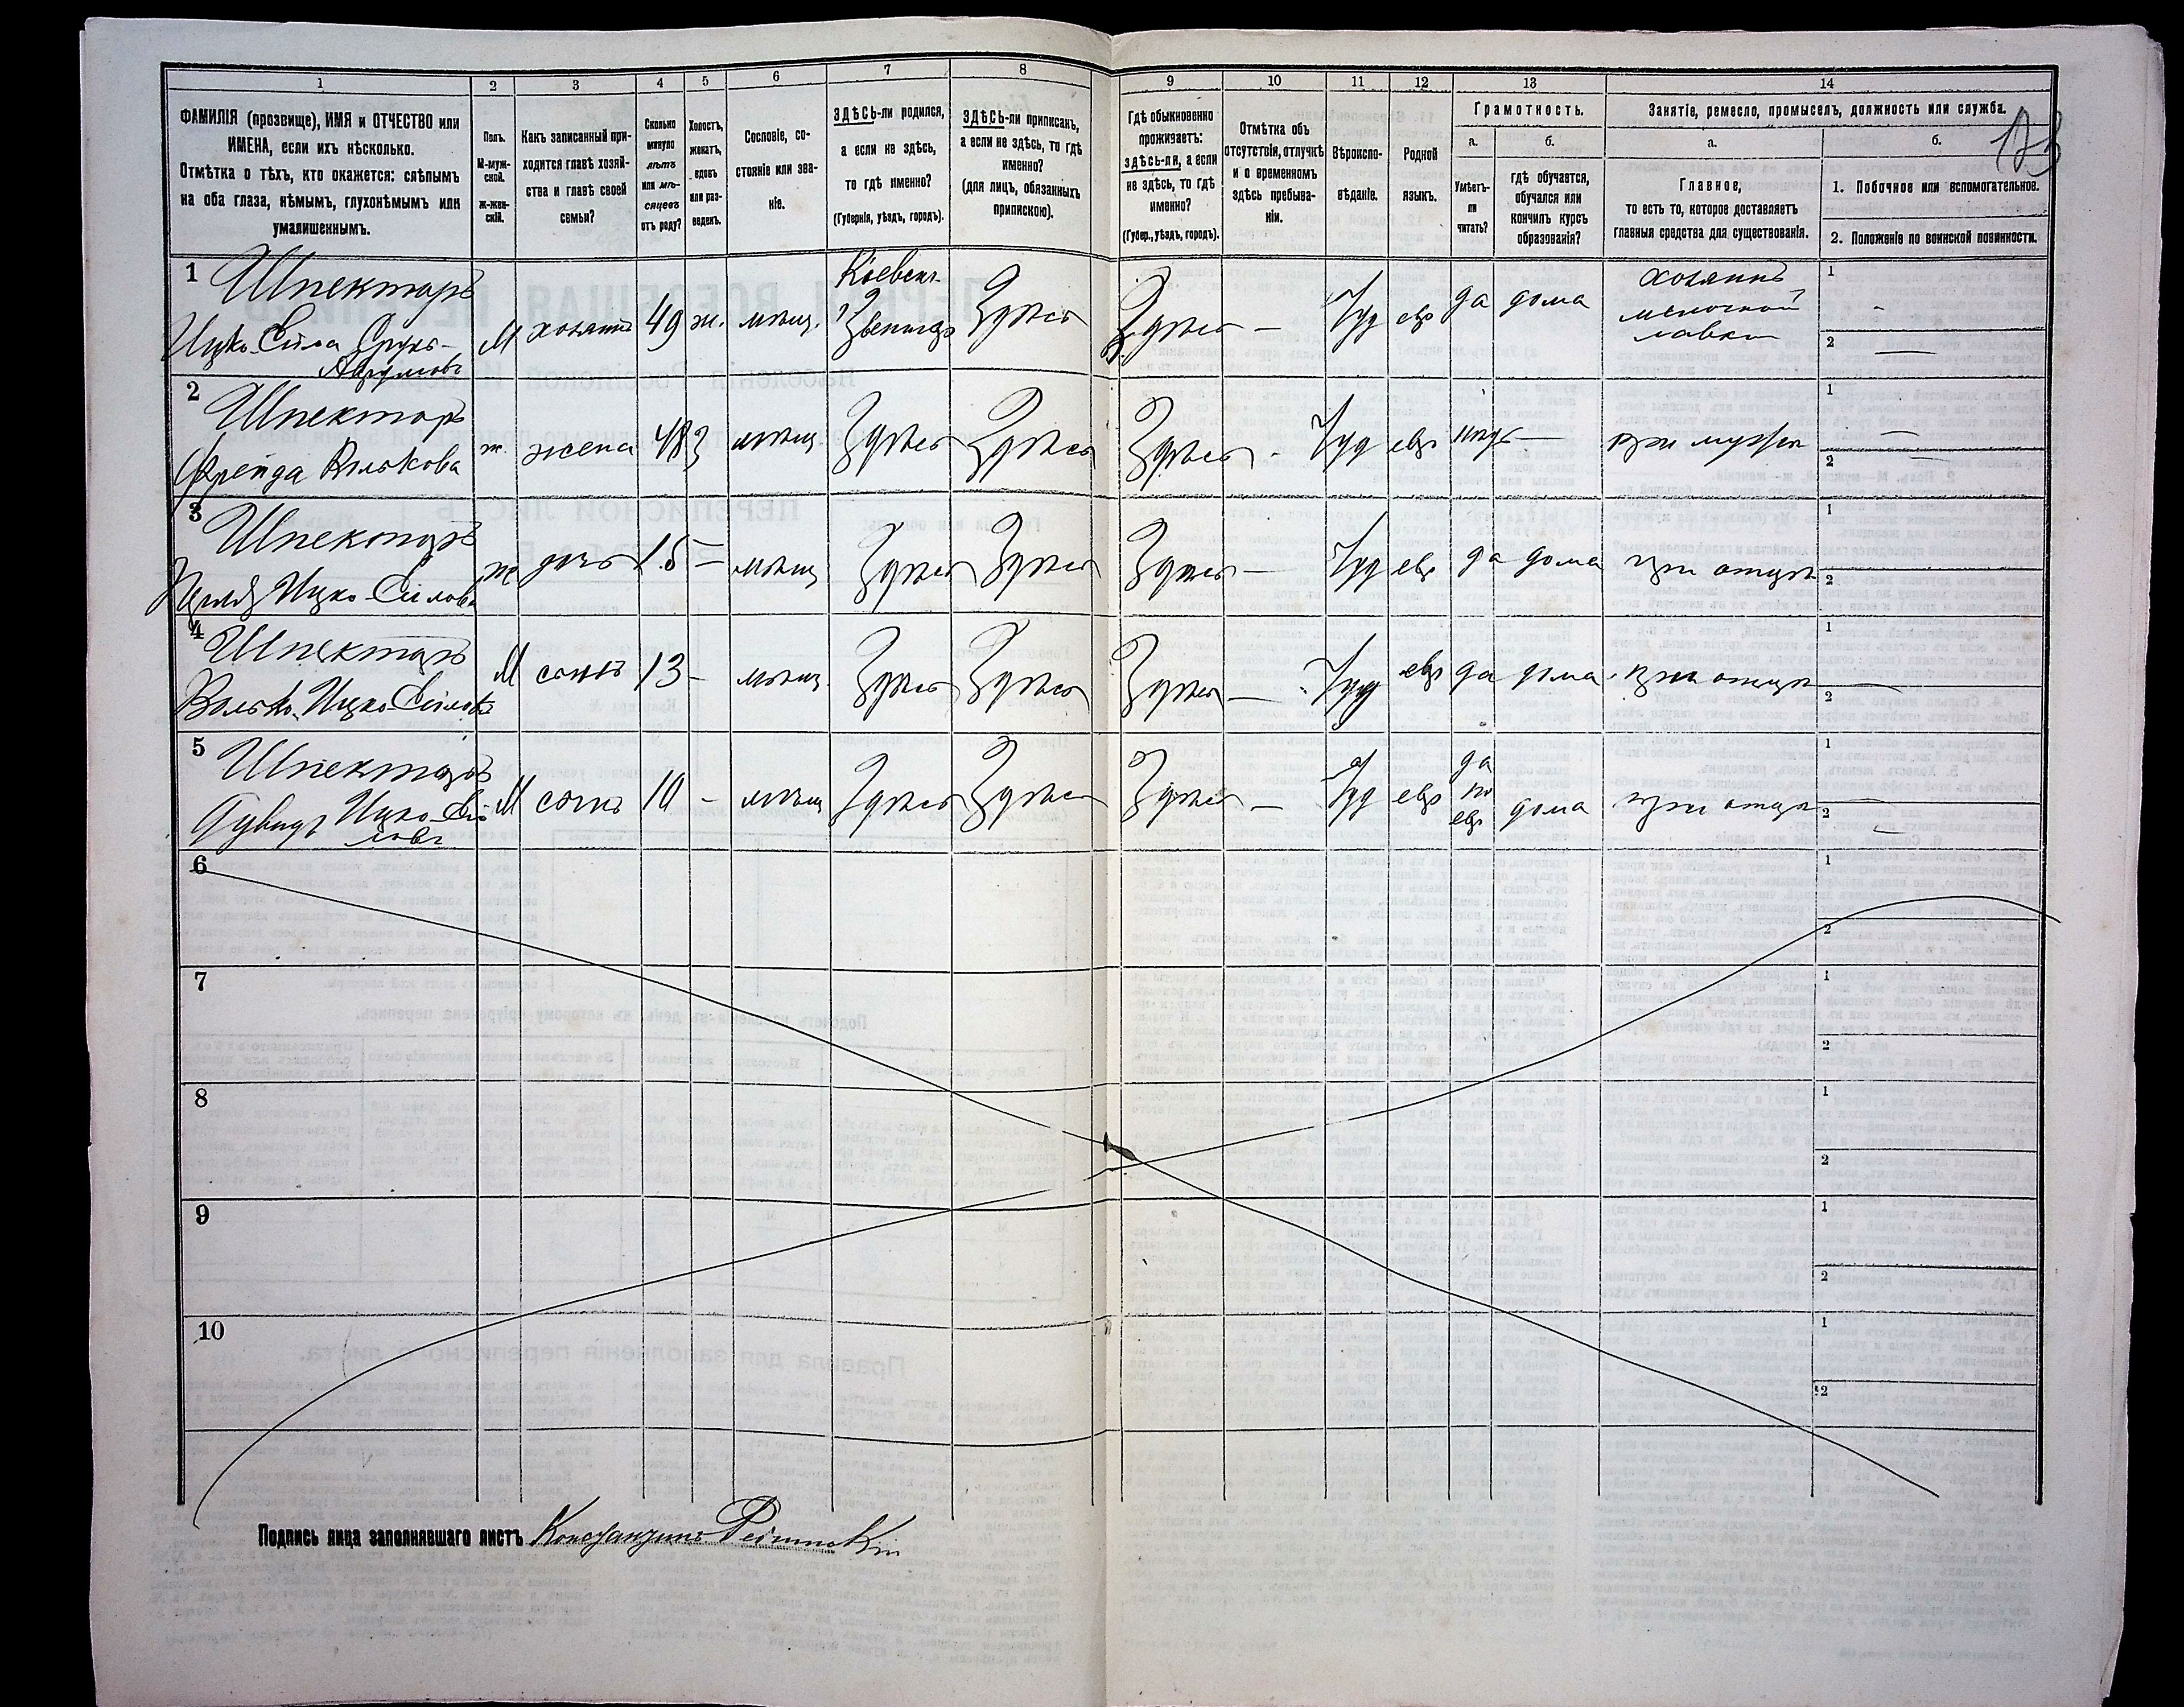 1 2 3 4 5 6 7 8 9 10 11 12 13 14
ФАМИЛІЯ (прозвище), ИМЯ и ОТЧЕСТВО или
ИМЕНА, если ихъ нѣсколько.
Отмѣтка о тѣхъ, кто окажется: слѣпымъ
на оба глаза, нѣмымъ, глухонѣмымъ или
умалишеннымъ.
Полъ.
М-муж-
ской.
ж-жен-
скій.
Какъ записанный при-
ходится главѣ хозяй-
ства и главѣ своей
семьи?
Сколько
минуло
лѣтъ
или мѣ-
сяцевъ
отъ роду?
Холостъ,
женатъ,
вдовъ
или раз-
веденъ.
Сословіе, со-
стояніе или зва-
ніе.
ЗДѢСЬ-ли родился,
а если не здѣсь,
то гдѣ именно?
(Губернія, уѣздъ, городъ).
ЗДѢСЬ-ли приписанъ,
а если не здѣсь, то гдѣ
именно?
(для лицъ, обязанныхъ
припискою).
Гдѣ обыкновенно
проживаетъ:
здѣсь-ли, а если
не здѣсь, то гдѣ
именно?
(Губер., уѣздъ, городъ).
Отмѣтка объ
отсутствіи, отлучкѣ
и о временномъ
здѣсь пребыва-
ніи.
Вѣроиспо-
вѣданіе.
Родной
языкъ.
Грамотность.
а.
Умѣетъ-
ли
читать?
б.
гдѣ обучается,
обучался или
кончилъ курсъ
образованія?
Занятіе, ремесло, промыселъ, должность или служба.
а.
Главное,
то есть то, которое доставляетъ
главныя средства для существованія.
б.
1. Побочное или вспомогательное.
2. Положеніе по воинской повинности.
1 Шпекторъ
Ицко-Сійма Сруль-
Аврумовъ
М хозяинъ 49 ж. мѣщ.
Кіевск.
Звенигор
Здѣсь Здѣсь — Іуд евр да дома
хозяинъ
мелочной
лавки
1
2 —
2 Шпекторъ
Фрейда Волькова
ж. жена 48 з мѣщ Здѣсь Здѣсь Здѣсь - Іуд евр нѣтъ — при мужѣ
1 —
2 —
3 Шпекторъ
Ицко-Сімова
ж дочь 15 — мѣщ Здѣсь Здѣсь Здѣсь — Іуд евр да дома при отцѣ
1
2
4 Шпекторъ
Волько Ицко-Сімовъ
М сынъ 13 - мѣщ. Здѣсь Здѣсь Здѣсь — Іуд евр да дома при отцѣ
1
2 —
5 Шпекторъ
Дувидъ Ицко-Сій
мовъ
М сынъ 10 - мѣщ Здѣсь Здѣсь Здѣсь — Іуд евр
да
по
евр
дома при отцѣ
1
2 —
6
1
2
7
1
2
8
1
2
9
1
2
10
1
2
Подпись лица заполнявшаго листъ Константинъ